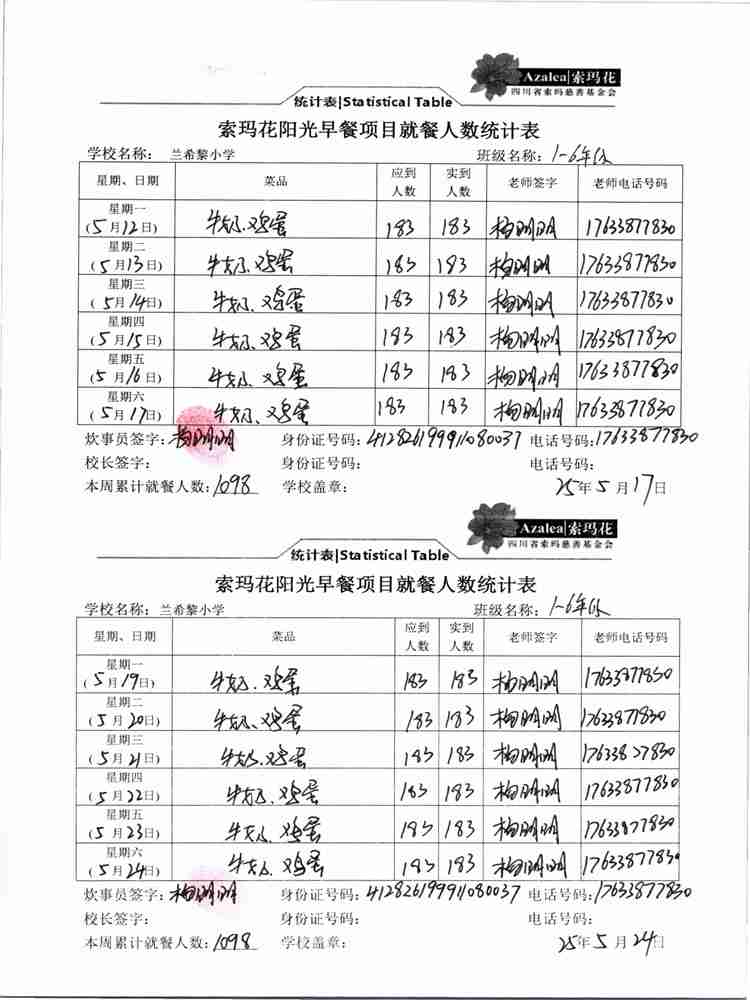 Azalea|索玛花
四川省索玛慈善基金会
统计表|Statistical Table
索玛花阳光早餐项目就餐人数统计表
学校名称: 兰希黎小学 班级名称: 1-6年级
星期、日期 菜品 应到人数 实到人数 老师签字 老师电话号码
星期一 (5月12日) 牛奶、鸡蛋 183 183 杨明明 17633877830
星期二 (5月13日) 牛奶、鸡蛋 183 183 杨明明 17633877830
星期三 (5月14日) 牛奶、鸡蛋 183 183 杨明明 17633877830
星期四 (5月15日) 牛奶、鸡蛋 183 183 杨明明 17633877830
星期五 (5月16日) 牛奶、鸡蛋 183 183 杨明明 17633877830
星期六 (5月17日) 牛奶、鸡蛋 183 183 杨明明 17633877830
炊事员签字: 杨明明 身份证号码: 412826199911080037 电话号码: 17633877830
校长签字: 身份证号码: 电话号码:
本周累计就餐人数: 1098 学校盖章: 25年5月17日
Azalea|索玛花
四川省索玛慈善基金会
统计表|Statistical Table
索玛花阳光早餐项目就餐人数统计表
学校名称: 兰希黎小学 班级名称: 1-6年级
星期、日期 菜品 应到人数 实到人数 老师签字 老师电话号码
星期一 (5月19日) 牛奶、鸡蛋 183 183 杨明明 17633877830
星期二 (5月20日) 牛奶、鸡蛋 183 183 杨明明 17633877830
星期三 (5月21日) 牛奶、鸡蛋 183 183 杨明明 17633877830
星期四 (5月22日) 牛奶、鸡蛋 183 183 杨明明 17633877830
星期五 (5月23日) 牛奶、鸡蛋 183 183 杨明明 17633877830
星期六 (5月24日) 牛奶、鸡蛋 183 183 杨明明 17633877830
炊事员签字: 杨明明 身份证号码: 412826199911080037 电话号码: 17633877830
校长签字: 身份证号码: 电话号码:
本周累计就餐人数: 1098 学校盖章: 25年5月24日